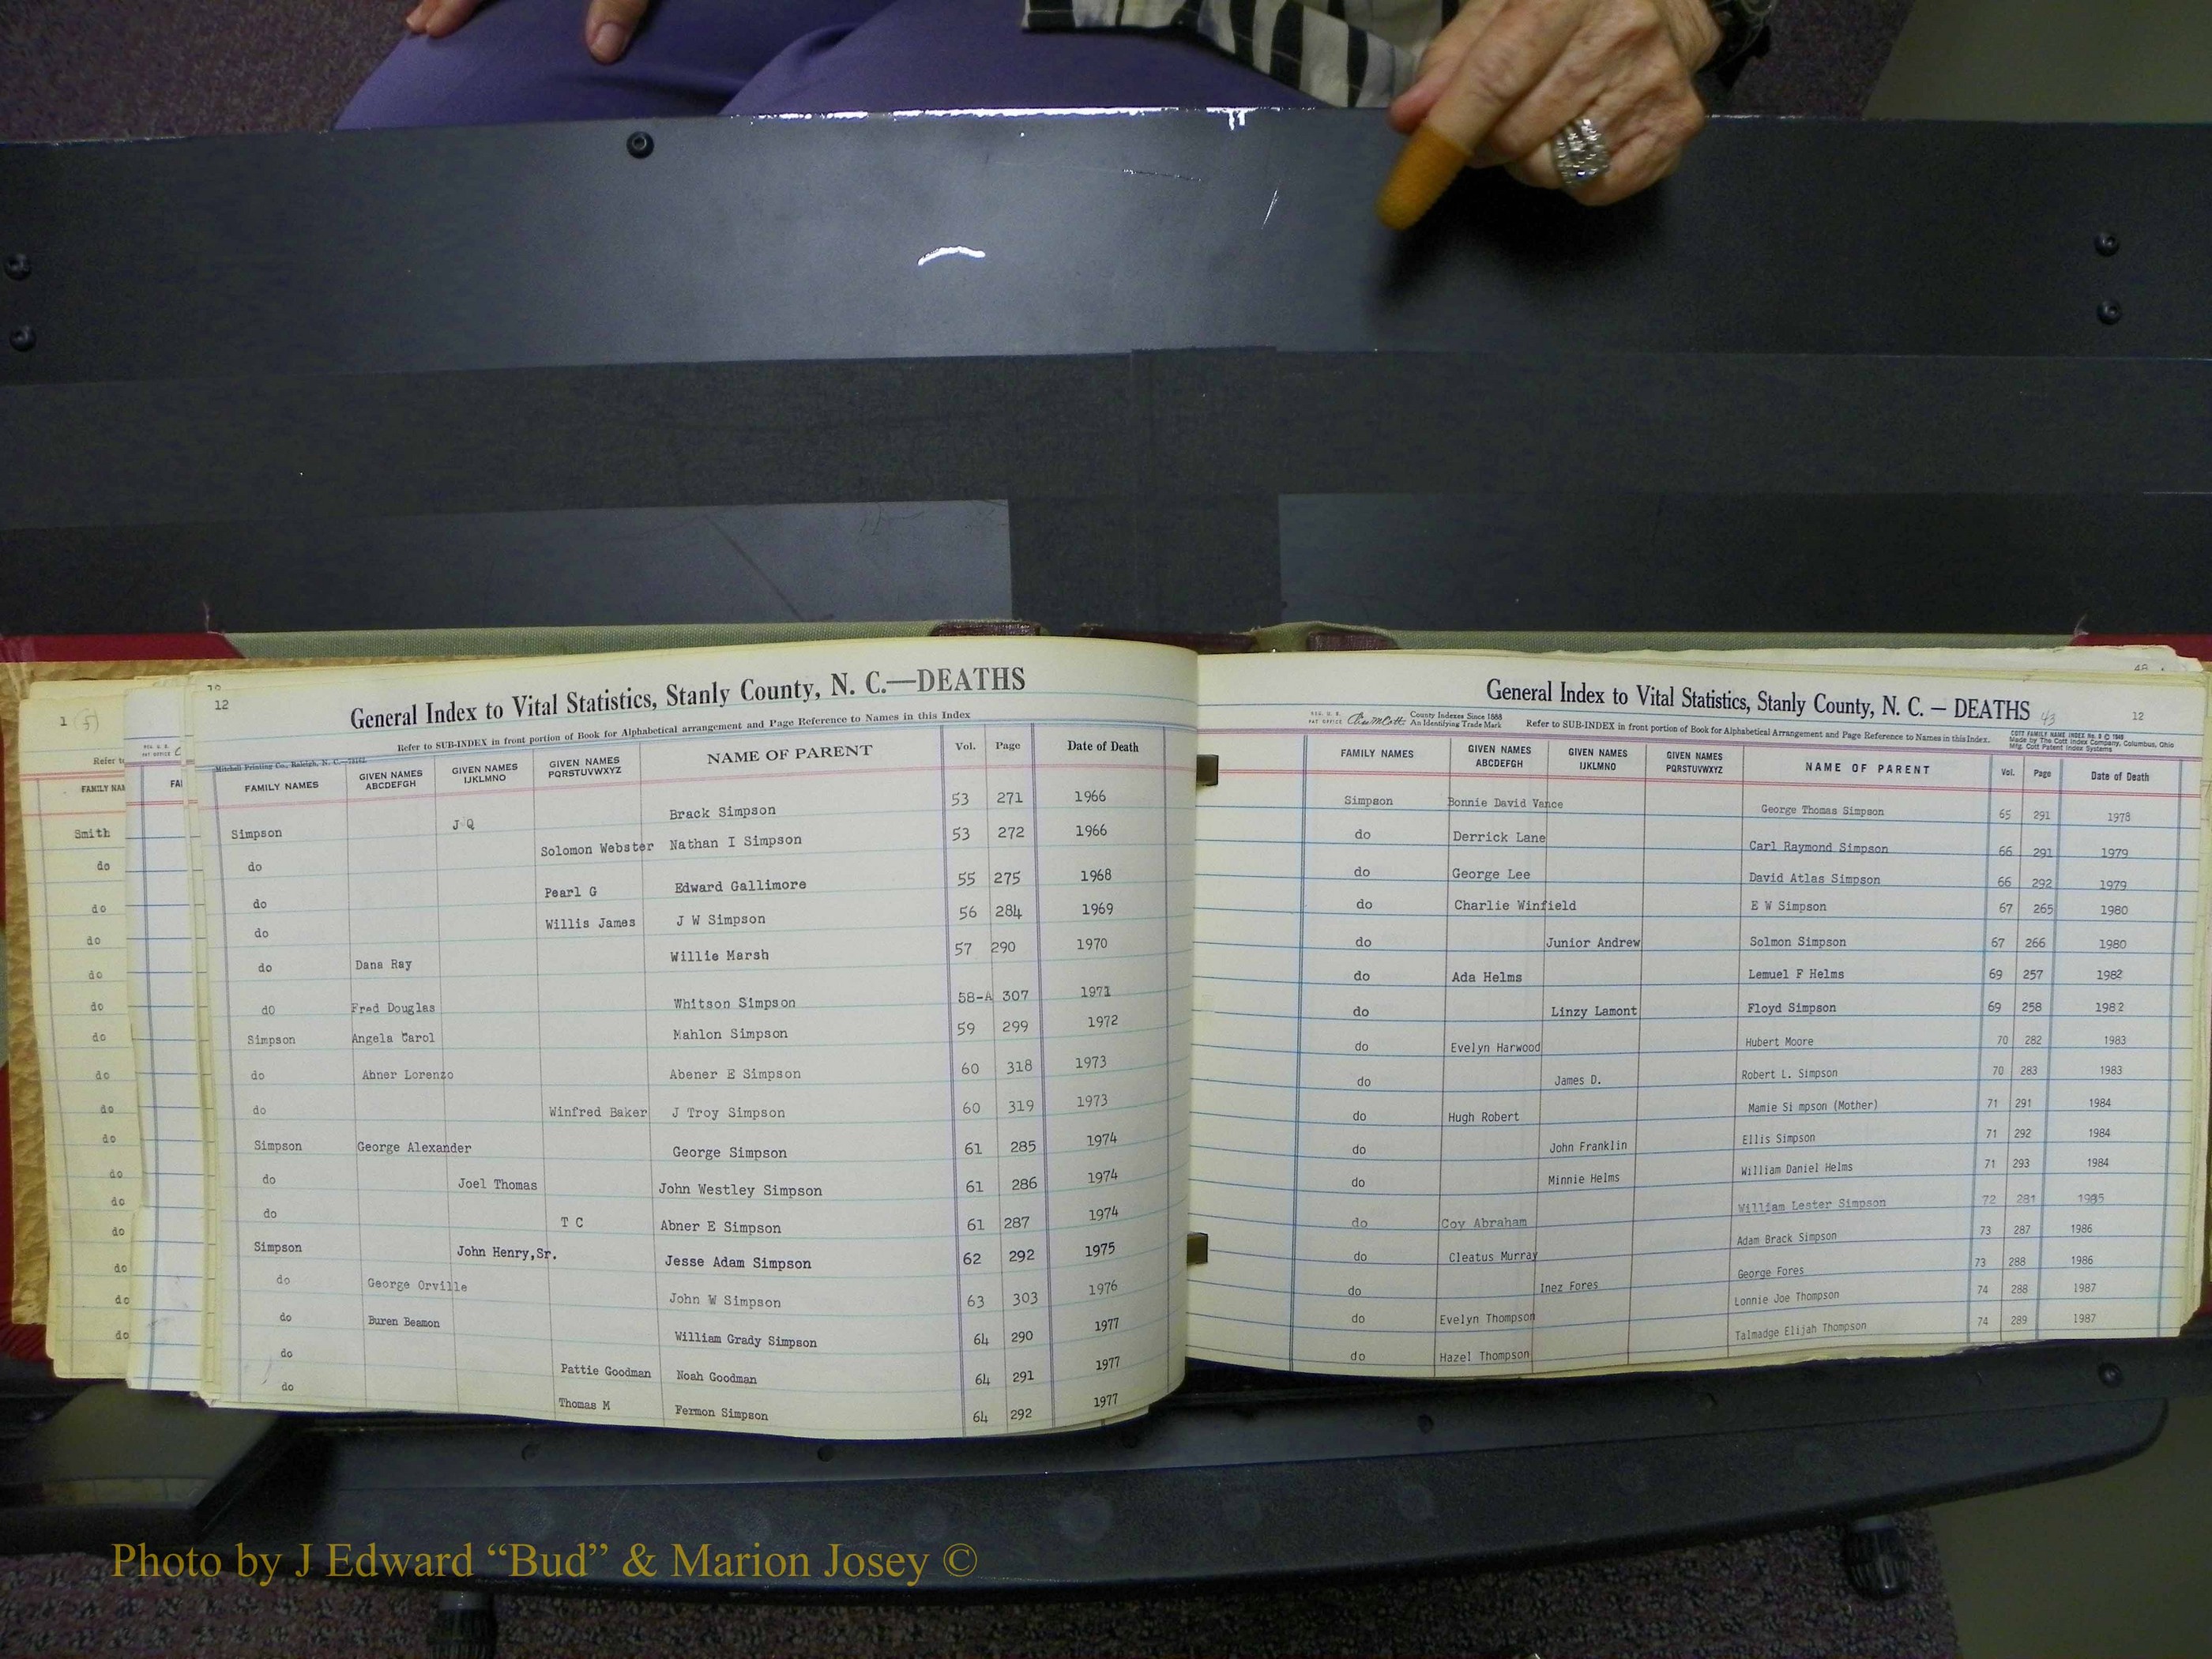 1 (5)
Refer to
FAMILY NAM
Smith
do
do
do
do
do
do
do
do
do
do
do
do
do
do
do
FA
12
General Index to Vital Statistics, Stanly County, N. C.—DEATHS
Refer to SUB-INDEX in front portion of Book for Alphabetical arrangement and Page Reference to Names in this Index
Mitchell Printing Co., Raleigh, N. C.
FAMILY NAMES GIVEN NAMES ABCDEFGH GIVEN NAMES IJKLMNO GIVEN NAMES PQRSTUVWXYZ NAME OF PARENT Vol. Page Date of Death
Simpson J Q Brack Simpson 53 271 1966
do Solomon Webster Nathan I Simpson 53 272 1966
do Pearl G Edward Gallimore 55 275 1968
do Willis James J W Simpson 56 284 1969
do Dana Ray Willie Marsh 57 290 1970
do Fred Douglas Whitson Simpson 58-A 307 1971
Simpson Angela Carol Mahlon Simpson 59 299 1972
do Abner Lorenzo Abener E Simpson 60 318 1973
do Winfred Baker J Troy Simpson 60 319 1973
Simpson George Alexander George Simpson 61 285 1974
do Joel Thomas John Westley Simpson 61 286 1974
do T C Abner E Simpson 61 287 1974
Simpson John Henry,Sr. Jesse Adam Simpson 62 292 1975
do George Orville John W Simpson 63 303 1976
do Buren Beamon William Grady Simpson 64 290 1977
do Pattie Goodman Noah Goodman 64 291 1977
do Thomas M Fermon Simpson 64 292 1977
General Index to Vital Statistics, Stanly County, N. C. — DEATHS 43 12
County Indexes Since 1888
An Identifying Trade Mark
Refer to SUB-INDEX in front portion of Book for Alphabetical Arrangement and Page Reference to Names in this Index.
Made by The Cott Index Company, Columbus, Ohio
FAMILY NAMES GIVEN NAMES ABCDEFGH GIVEN NAMES IJKLMNO GIVEN NAMES PQRSTUVWXYZ NAME OF PARENT Vol. Page Date of Death
Simpson Bonnie David Vance George Thomas Simpson 65 291 1978
do Derrick Lane Carl Raymond Simpson 66 291 1979
do George Lee David Atlas Simpson 66 292 1979
do Charlie Winfield E W Simpson 67 265 1980
do Junior Andrew Solmon Simpson 67 266 1980
do Ada Helms Lemuel F Helms 69 257 1982
do Linzy Lamont Floyd Simpson 69 258 1982
do Evelyn Harwood Hubert Moore 70 282 1983
do James D. Robert L. Simpson 70 283 1983
do Hugh Robert Mamie Si mpson (Mother) 71 291 1984
do John Franklin Ellis Simpson 71 292 1984
do Minnie Helms William Daniel Helms 71 293 1984
do Coy Abraham William Lester Simpson 72 281 1985
do Cleatus Murray Adam Brack Simpson 73 287 1986
do Inez Fores George Fores 73 288 1986
do Evelyn Thompson Lonnie Joe Thompson 74 288 1987
do Hazel Thompson Talmadge Elijah Thompson 74 289 1987
Photo by J Edward “Bud” & Marion Josey ©